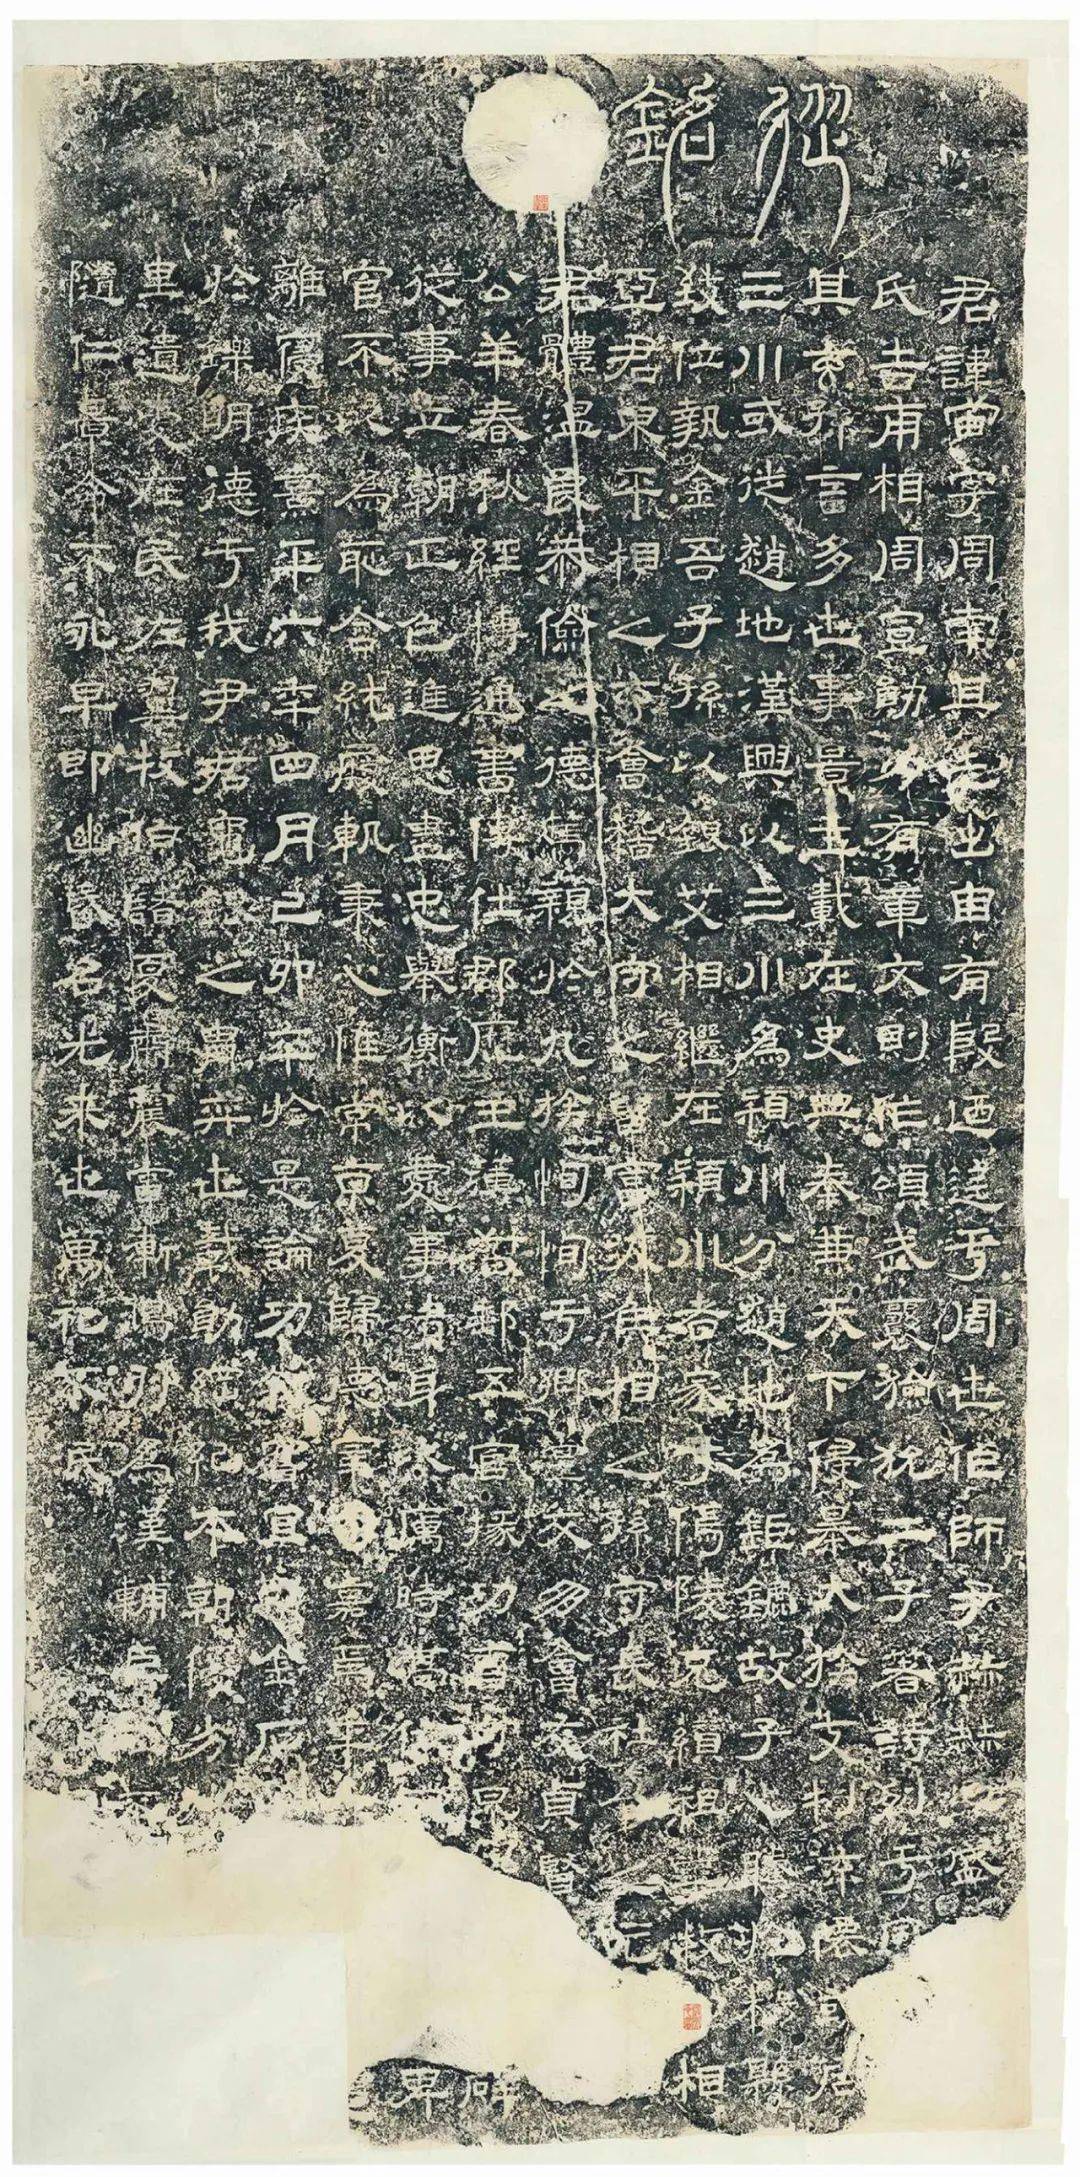 從銘
君諱宙字周南其先出自有殷迺迄于周世作師尹赫赫之盛
氏吉甫相周宣勛力有章文則作頌武襄獫狁二子著詩列于風
其玄孫言多世事景王載在史典秦兼天下侵暴大族支判流僊或居
三川或徙趙地漢興以三川為潁川分趙地為鉅鏕故子心騰於楊縣
致位執金吾子孫以銀艾相繼在潁川者家于傿陵克纘祖業牧相
亞君東平相之玄會稽大守之曾富波侯相之孫守長社令之元
君體溫良恭儉之德篤親於九族恂恂于鄉黨交朋會友貞賢
公羊春秋經博通書傳仕郡歷主簿督郵五官掾功曹守昆辟
從事立朝正色進思盡忠舉衡以處事清身以厲時高位卑
官不以為恥含純履軌秉心惟常京夏歸德宰司嘉焉年
離寢疾熹平六年四月己卯卒於是論功敘實宜勒金石
於鑠明德于我尹君龜銀之胄弈世載勛綱紀本朝優劭
里遺愛在民佐翼牧伯諸夏肅震當漸鴻羽為漢輔臣位不
隨仁景命不永早即幽昏名光來世萬祀不泯